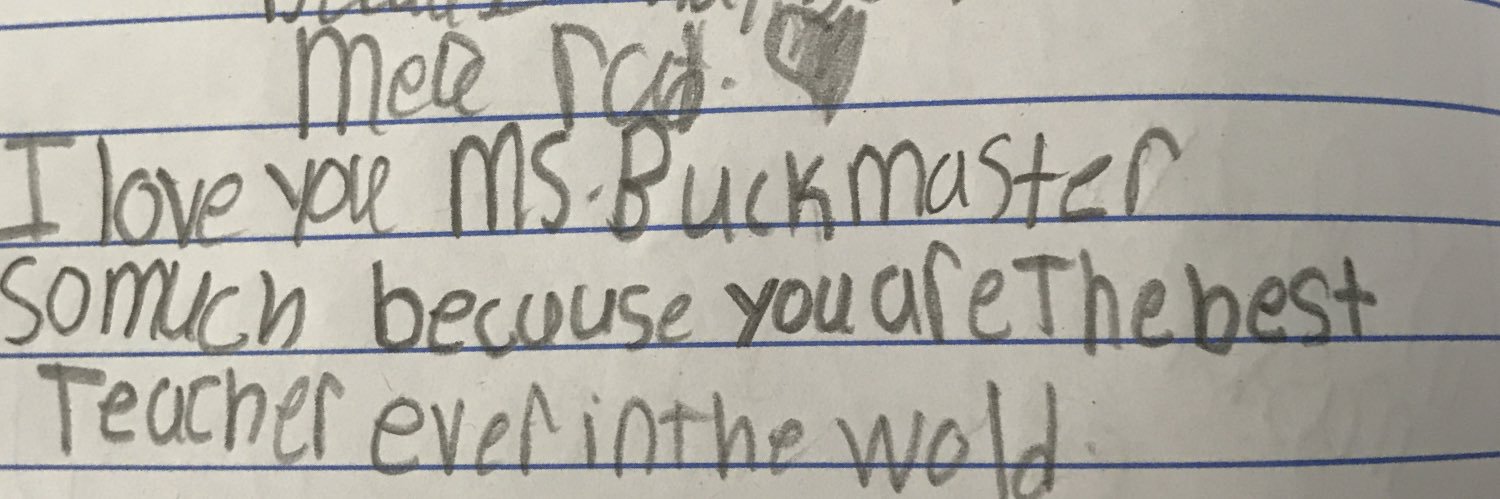 I love you Ms. Buckmaster
so much because you are The best
Teacher ever in the wold.